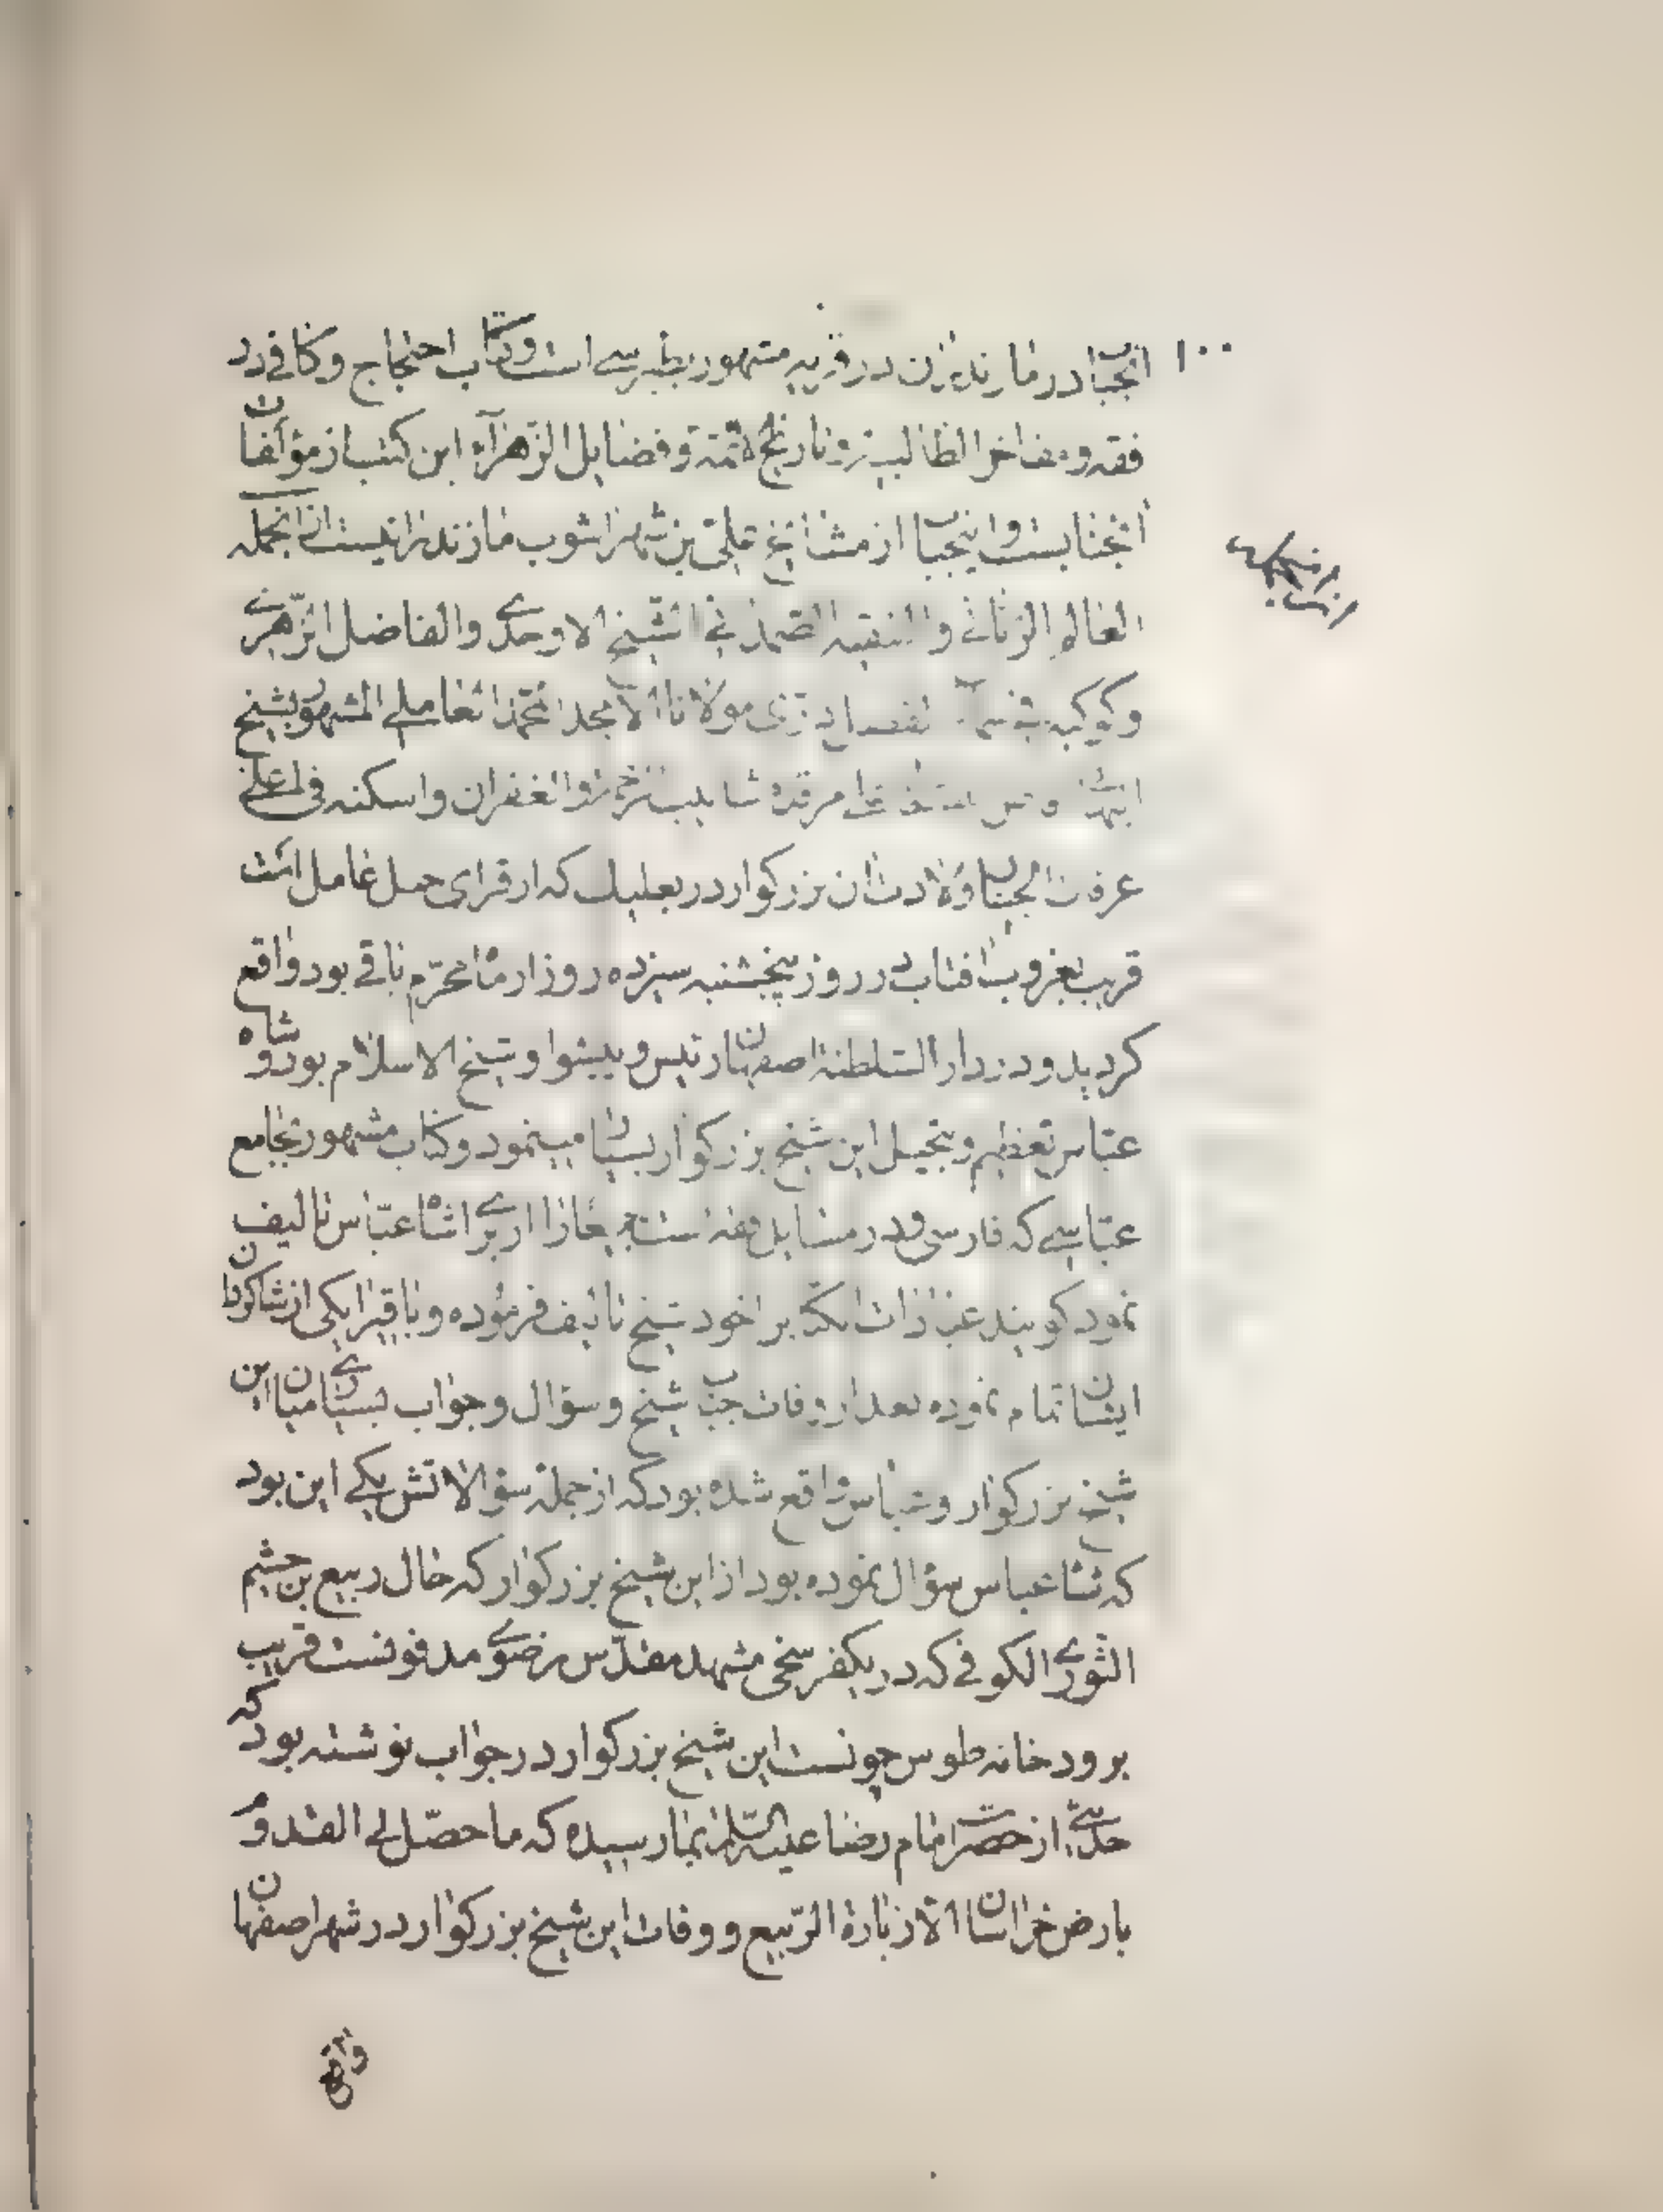 ۱۰۰
انجناب در مازندران در قریه مشهور بطبرسی است و کتاب احتجاج و کافی در
فقه و مفاخر الطالبیه و تاریخ ائمه و فضایل الزهراء این کتب از مؤلفات
انجنابست و اینجناب از مشایخ علی بن شهراشوب مازندرانیست از انجمله
العالم الربانی و الفقیه الصمدانی الشیخ الاوحدی والفاضل
و کوکبه مولانا الامجد محمد العاملی المشهور بشیخ
مرقده شابیب الرحمة والغفران واسکنه فی اعلی
غرفات الجنان ولادت ان بزرکوار در بعلبک که از قرای جبل عامل است
قریب بغروب افتاب در روز پنجشنبه سیزده روز از ماه محرّم باقی بود واقع
کردید و در دار السلطنة اصفهان رئیس و پیشوا و شیخ الاسلام بود و شاه
عبّاس تعظیم و تبجیل این شیخ بزرکوار بسیار مینمود و کتاب مشهور بجامع
عبّاسی که فارسی و در مسایل فقه است از برای شاه عبّاس تالیف
نمود کویند عبادات کتاب را خود شیخ تالیف فرموده و باقیرا یکی از شاکردان
ایشان تمام نموده بعد از وفات جناب شیخ و سؤال و جواب بسیاری میان این
شیخ بزرکوار و عباس واقع شده بود که از جمله سؤالاتش یکی این بود
که شاه عباس سؤال نموده بود از این شیخ بزرکوار که حال ربیع بن خثیم
الثوری الکوفی که در یکفرسخی مشهد مقدّس رضوی مدفونست قریب
برودخانه طوس چونست این شیخ بزرکوار در جواب نوشته بود که
حدیثی از حضرت امام رضا علیه السّلام بما رسیده که ما حصّل لی القدوم
بارض خراسان الا زیارة الرّبیع و وفات این شیخ بزرکوار در شهر اصفهان
واقع